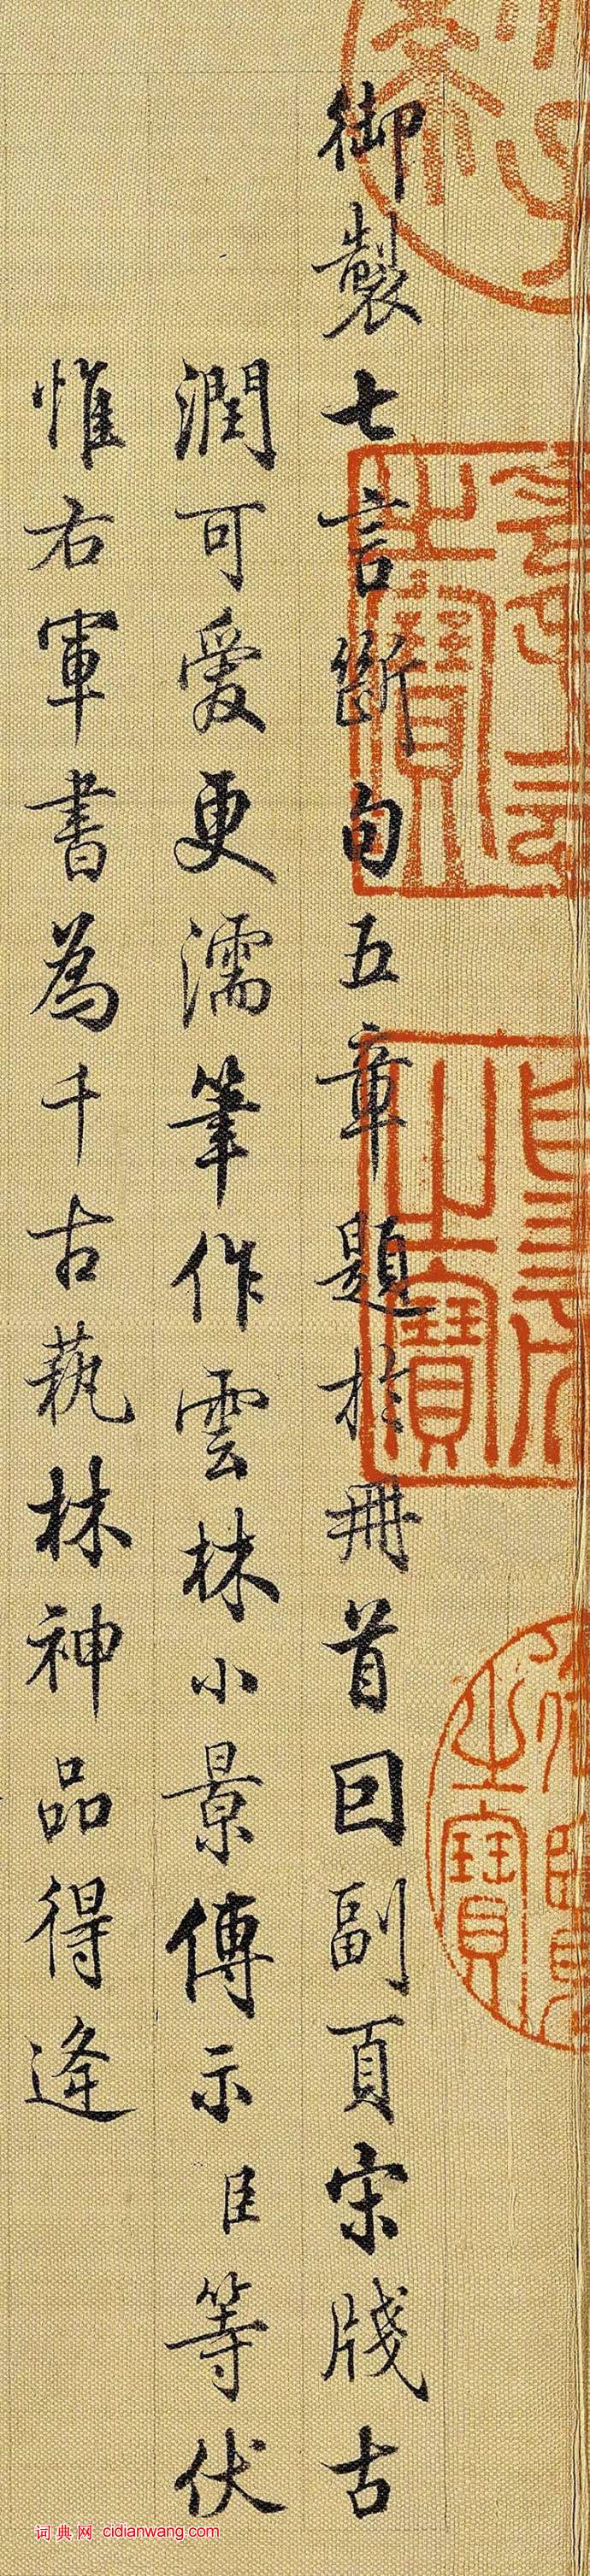 御製七言斷句五章題於冊首回副頁宋牋古
潤可愛更濡筆作雲林小景傳示臣等伏
惟右軍書為千古蓺林神品得逢
之寶
之寶
之寶
词典网 cidianwang.com